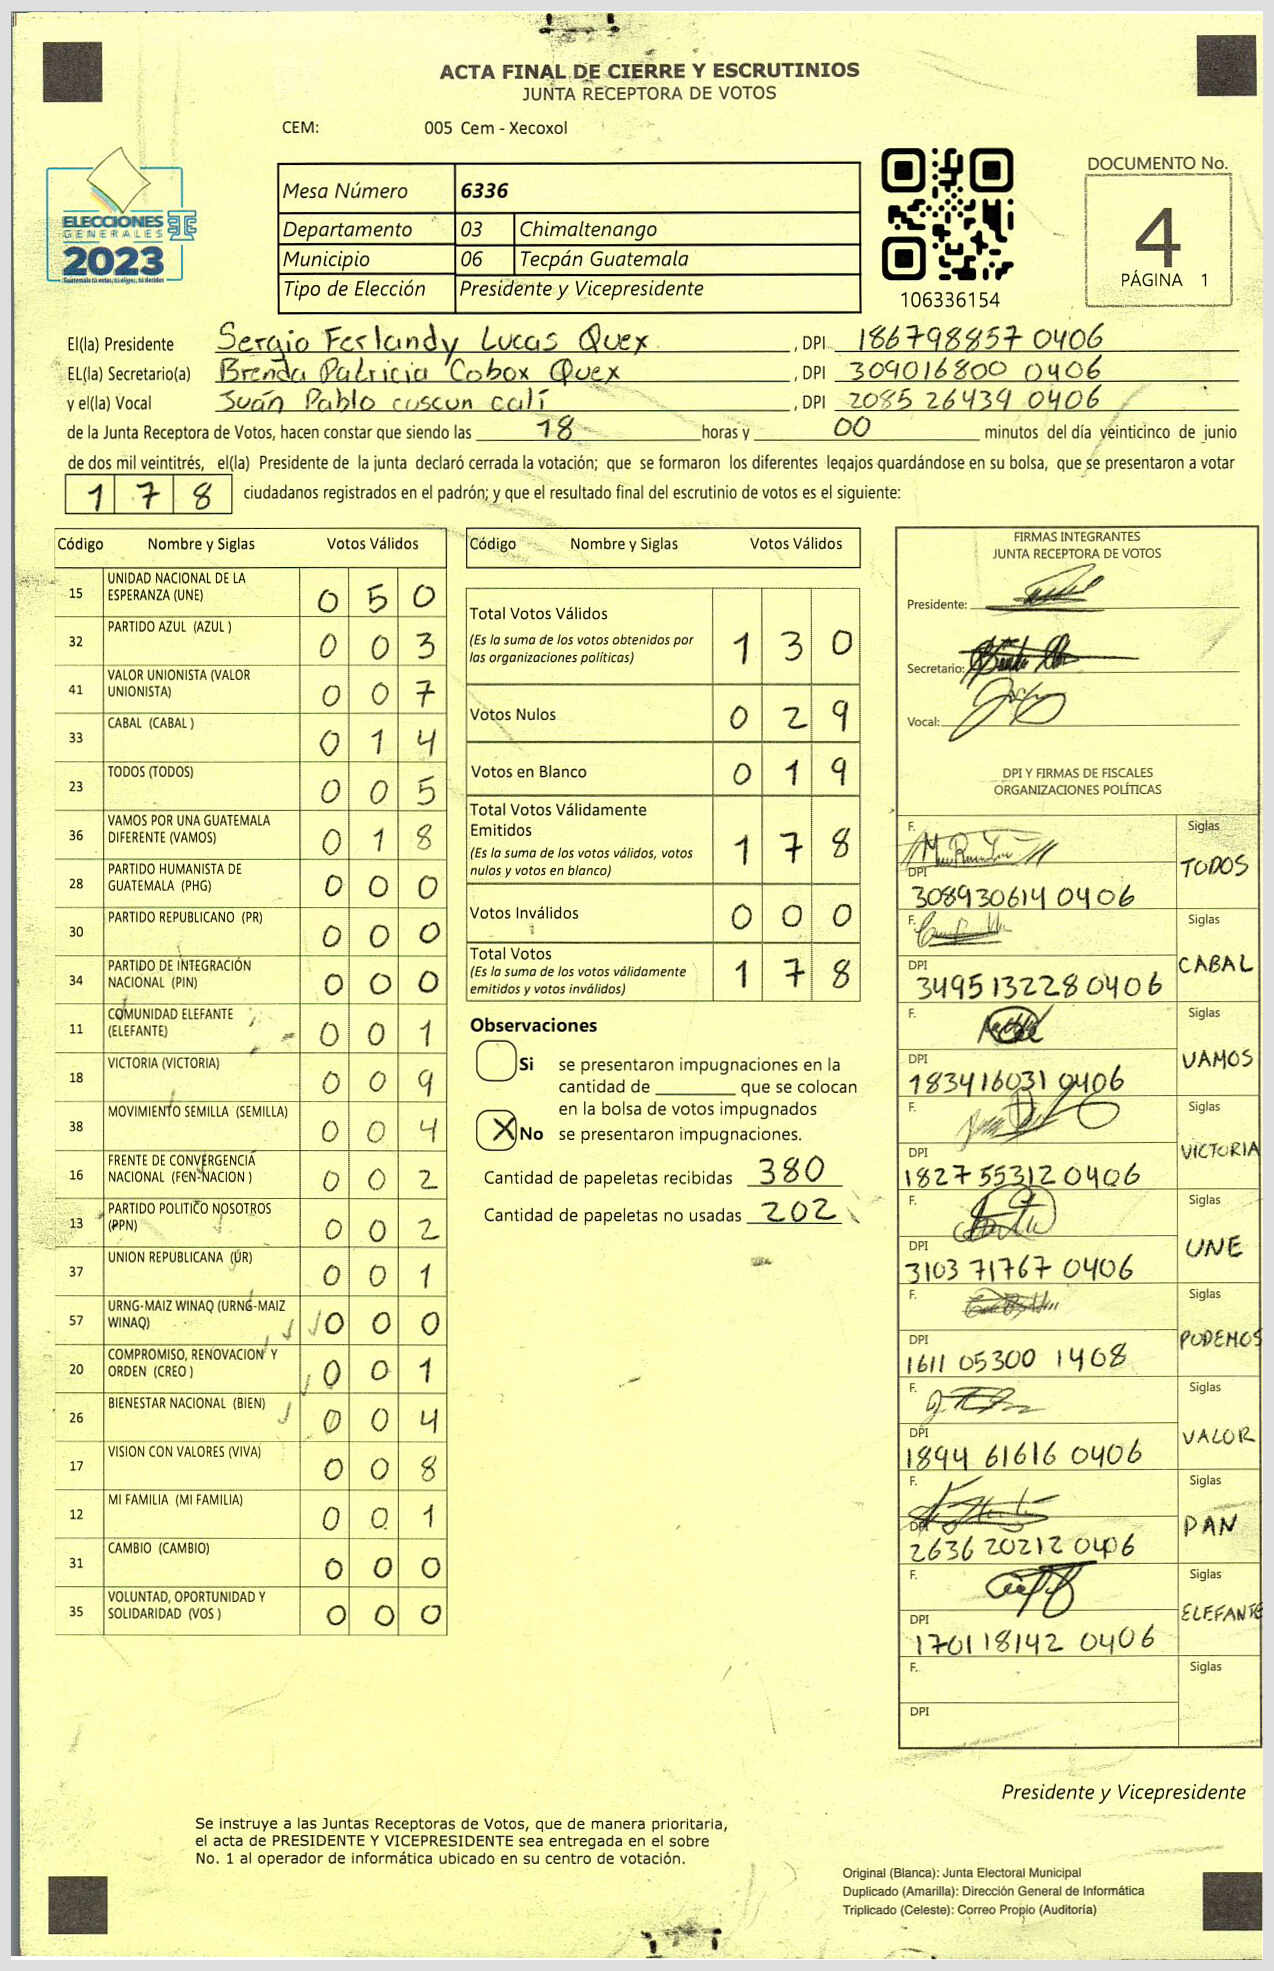 ACTA FINAL DE CIERRE Y ESCRUTINIOS
JUNTA RECEPTORA DE VOTOS
CEM: 005 Cem - Xecoxol
ELECCIONES
GENERALES
2023
Guatemala tú votas, tú eliges, tú decides
Mesa Número 6336
Departamento 03 Chimaltenango
Municipio 06 Tecpán Guatemala
Tipo de Elección Presidente y Vicepresidente
106336154
DOCUMENTO No.
4
PÁGINA 1
El(la) Presidente Sergio Ferlandy Lucas Quex, DPI 186798857 0406
EL(la) Secretario(a) Brenda Patricia Cobox Quex, DPI 309016800 0406
y el(la) Vocal Juán Pablo cuscun calí, DPI 2085 26439 0406
de la Junta Receptora de Votos, hacen constar que siendo las 18 horas y 00 minutos del día veinticinco de junio
de dos mil veintitrés, el(la) Presidente de la junta declaró cerrada la votación; que se formaron los diferentes legajos guardándose en su bolsa, que se presentaron a votar
178 ciudadanos registrados en el padrón; y que el resultado final del escrutinio de votos es el siguiente:
Código Nombre y Siglas Votos Válidos
15 UNIDAD NACIONAL DE LA
ESPERANZA (UNE) 0 5 0
32 PARTIDO AZUL (AZUL ) 0 0 3
41 VALOR UNIONISTA (VALOR
UNIONISTA) 0 0 7
33 CABAL (CABAL ) 0 1 4
23 TODOS (TODOS) 0 0 5
36 VAMOS POR UNA GUATEMALA
DIFERENTE (VAMOS) 0 1 8
28 PARTIDO HUMANISTA DE
GUATEMALA (PHG) 0 0 0
30 PARTIDO REPUBLICANO (PR) 0 0 0
34 PARTIDO DE INTEGRACIÓN
NACIONAL (PIN) 0 0 0
11 COMUNIDAD ELEFANTE
(ELEFANTE) 0 0 1
18 VICTORIA (VICTORIA) 0 0 9
38 MOVIMIENTO SEMILLA (SEMILLA) 0 0 4
16 FRENTE DE CONVERGENCIA
NACIONAL (FCN-NACION ) 0 0 2
13 PARTIDO POLITICO NOSOTROS
(PPN) 0 0 2
37 UNION REPUBLICANA (UR) 0 0 1
57 URNG-MAIZ WINAQ (URNG-MAIZ
WINAQ) 0 0 0
20 COMPROMISO, RENOVACION Y
ORDEN (CREO ) 0 0 1
26 BIENESTAR NACIONAL (BIEN) 0 0 4
17 VISION CON VALORES (VIVA) 0 0 8
12 MI FAMILIA (MI FAMILIA) 0 0 1
31 CAMBIO (CAMBIO) 0 0 0
35 VOLUNTAD, OPORTUNIDAD Y
SOLIDARIDAD (VOS ) 0 0 0
Código Nombre y Siglas Votos Válidos
Total Votos Válidos
(Es la suma de los votos obtenidos por
las organizaciones políticas) 1 3 0
Votos Nulos 0 2 9
Votos en Blanco 0 1 9
Total Votos Válidamente
Emitidos
(Es la suma de los votos válidos, votos
nulos y votos en blanco) 1 7 8
Votos Inválidos 0 0 0
Total Votos
(Es la suma de los votos válidamente
emitidos y votos inválidos) 1 7 8
Observaciones
Si se presentaron impugnaciones en la
cantidad de ________ que se colocan
en la bolsa de votos impugnados
X No se presentaron impugnaciones.
Cantidad de papeletas recibidas 380
Cantidad de papeletas no usadas 202
FIRMAS INTEGRANTES
JUNTA RECEPTORA DE VOTOS
Presidente:
Secretario:
Vocal:
DPI Y FIRMAS DE FISCALES
ORGANIZACIONES POLÍTICAS
F. Siglas
TODOS
DPI
308930614 0406
F. Siglas
CABAL
DPI
3495132280406
F. Siglas
VAMOS
DPI
183416031 0406
F. Siglas
VICTORIA
DPI
1827 55312 0406
F. Siglas
UNE
DPI
3103 71767 0406
F. Siglas
PODEMOS
DPI
1611 05300 1408
F. Siglas
VALOR
DPI
1894 61616 0406
F. Siglas
PAN
DPI
2636 20212 0406
F. Siglas
ELEFANTE
DPI
170118142 0406
F. Siglas
DPI
Presidente y Vicepresidente
Se instruye a las Juntas Receptoras de Votos, que de manera prioritaria,
el acta de PRESIDENTE Y VICEPRESIDENTE sea entregada en el sobre
No. 1 al operador de informática ubicado en su centro de votación.
Original (Blanca): Junta Electoral Municipal
Duplicado (Amarilla): Dirección General de Informática
Triplicado (Celeste): Correo Propio (Auditoría)